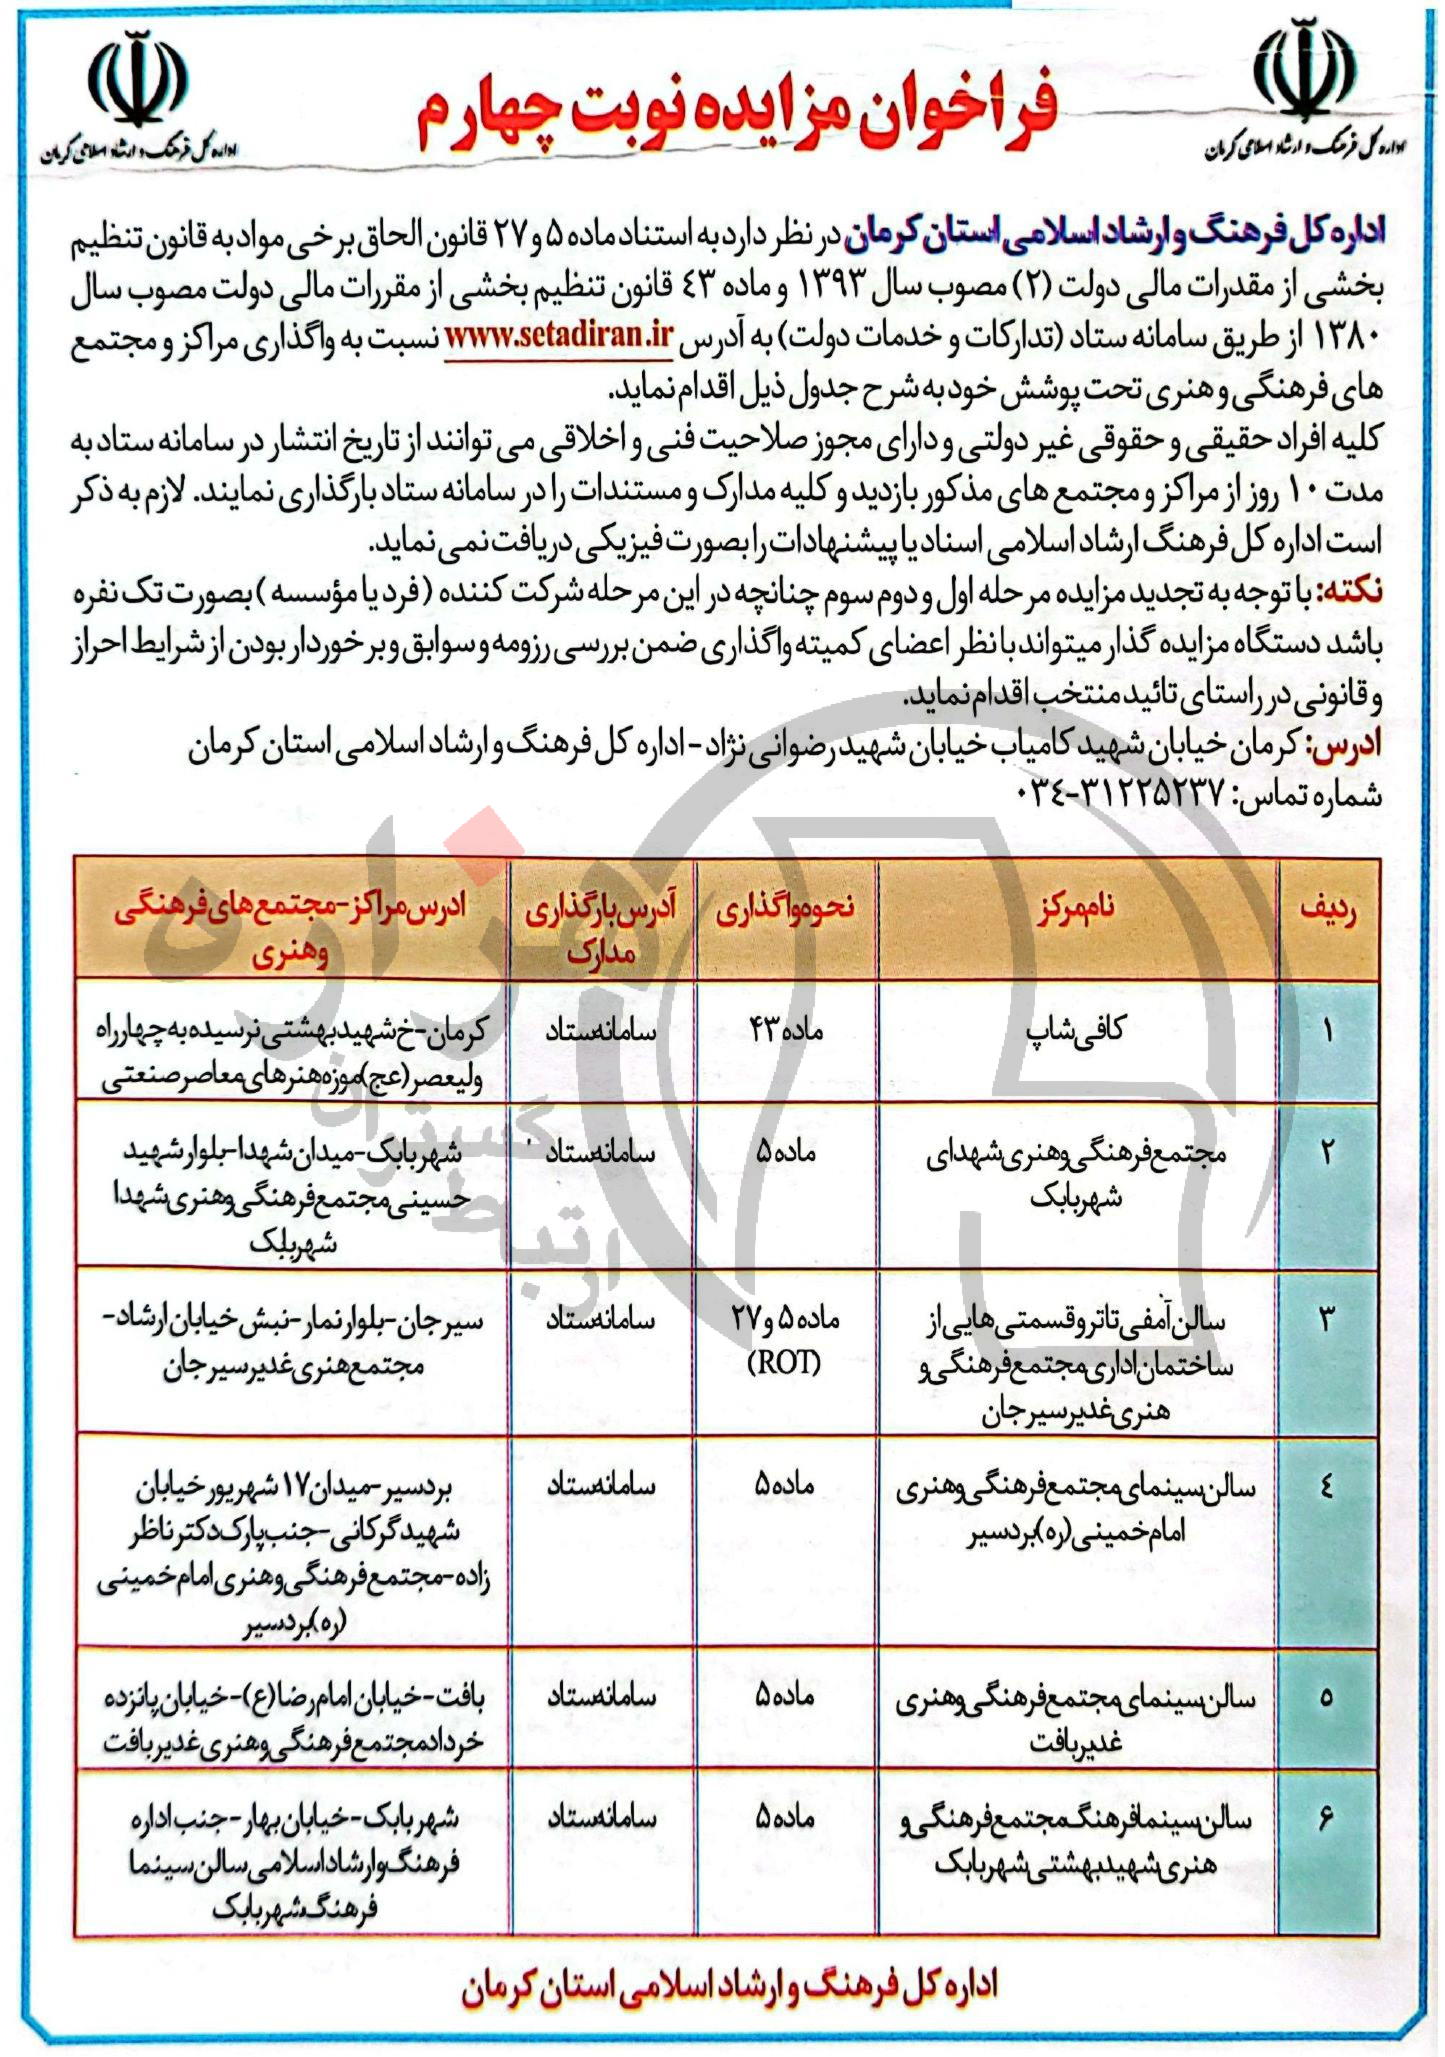 اداره کل فرهنگ و ارشاد اسلامی کرمان
فراخوان مزایده نوبت چهارم
اداره کل فرهنگ و ارشاد اسلامی کرمان
اداره کل فرهنگ و ارشاد اسلامی استان کرمان در نظر دارد به استناد ماده ۵ و ۲۷ قانون الحاق برخی مواد به قانون تنظیم
بخشی از مقدرات مالی دولت (۲) مصوب سال ۱۳۹۳ و ماده ۴۳ قانون تنظیم بخشی از مقررات مالی دولت مصوب سال
۱۳۸۰ از طریق سامانه ستاد (تدارکات و خدمات دولت) به آدرس www.setadiran.ir نسبت به واگذاری مراکز و مجتمع
های فرهنگی و هنری تحت پوشش خود به شرح جدول ذیل اقدام نماید.
کلیه افراد حقیقی و حقوقی غیر دولتی و دارای مجوز صلاحیت فنی و اخلاقی می توانند از تاریخ انتشار در سامانه ستاد به
مدت ۱۰ روز از مراکز و مجتمع های مذکور بازدید و کلیه مدارک و مستندات را در سامانه ستاد بارگذاری نمایند. لازم به ذکر
است اداره کل فرهنگ ارشاد اسلامی اسناد یا پیشنهادات را بصورت فیزیکی دریافت نمی نماید.
نکته: با توجه به تجدید مزایده مرحله اول و دوم سوم چنانچه در این مرحله شرکت کننده (فرد یا مؤسسه) بصورت تک نفره
باشد دستگاه مزایده گذار میتواند با نظر اعضای کمیته واگذاری ضمن بررسی رزومه و سوابق و برخوردار بودن از شرایط احراز
و قانونی در راستای تائید منتخب اقدام نماید.
ادرس: کرمان خیابان شهید کامیاب خیابان شهید رضوانی نژاد - اداره کل فرهنگ و ارشاد اسلامی استان کرمان
شماره تماس: ۳۱۲۲۵۲۳۷-۰۳۴
ردیف نام مرکز نحوه واگذاری آدرس بارگذاری ادرس مراکز - مجتمع های فرهنگی
مدارک و هنری
۱ کافی شاپ ماده ۴۳ سامانه ستاد کرمان - خ شهید بهشتی نرسیده به چهارراه
ولیعصر (عج) موزه هنرهای معاصر صنعتی
۲ مجتمع فرهنگی و هنری شهدای ماده ۵ سامانه ستاد شهربابک - میدان شهدا - بلوار شهید
شهربابک حسینی مجتمع فرهنگی و هنری شهدا
شهربابک
۳ سالن آمفی تاتر و قسمتی هایی از ماده ۵ و ۲۷ سامانه ستاد سیرجان - بلوار نمار - نبش خیابان ارشاد -
ساختمان اداری مجتمع فرهنگی و (ROT) مجتمع هنری غدیر سیرجان
هنری غدیر سیرجان
۴ سالن سینمای مجتمع فرهنگی و هنری ماده ۵ سامانه ستاد بردسیر - میدان ۱۷ شهریور خیابان
امام خمینی (ره) بردسیر شهید گرکانی - جنب پارک دکتر ناظر
زاده - مجتمع فرهنگی و هنری امام خمینی
(ره) بردسیر
۵ سالن سینمای مجتمع فرهنگی و هنری ماده ۵ سامانه ستاد بافت - خیابان امام رضا (ع) - خیابان پانزده
غدیر بافت خرداد مجتمع فرهنگی و هنری غدیر بافت
۶ سالن سینما فرهنگ مجتمع فرهنگی و ماده ۵ سامانه ستاد شهربابک - خیابان بهار - جنب اداره
هنری شهید بهشتی شهربابک فرهنگ و ارشاد اسلامی سالن سینما
فرهنگ شهربابک
اداره کل فرهنگ و ارشاد اسلامی استان کرمان
هزاره
ارتباط گستران